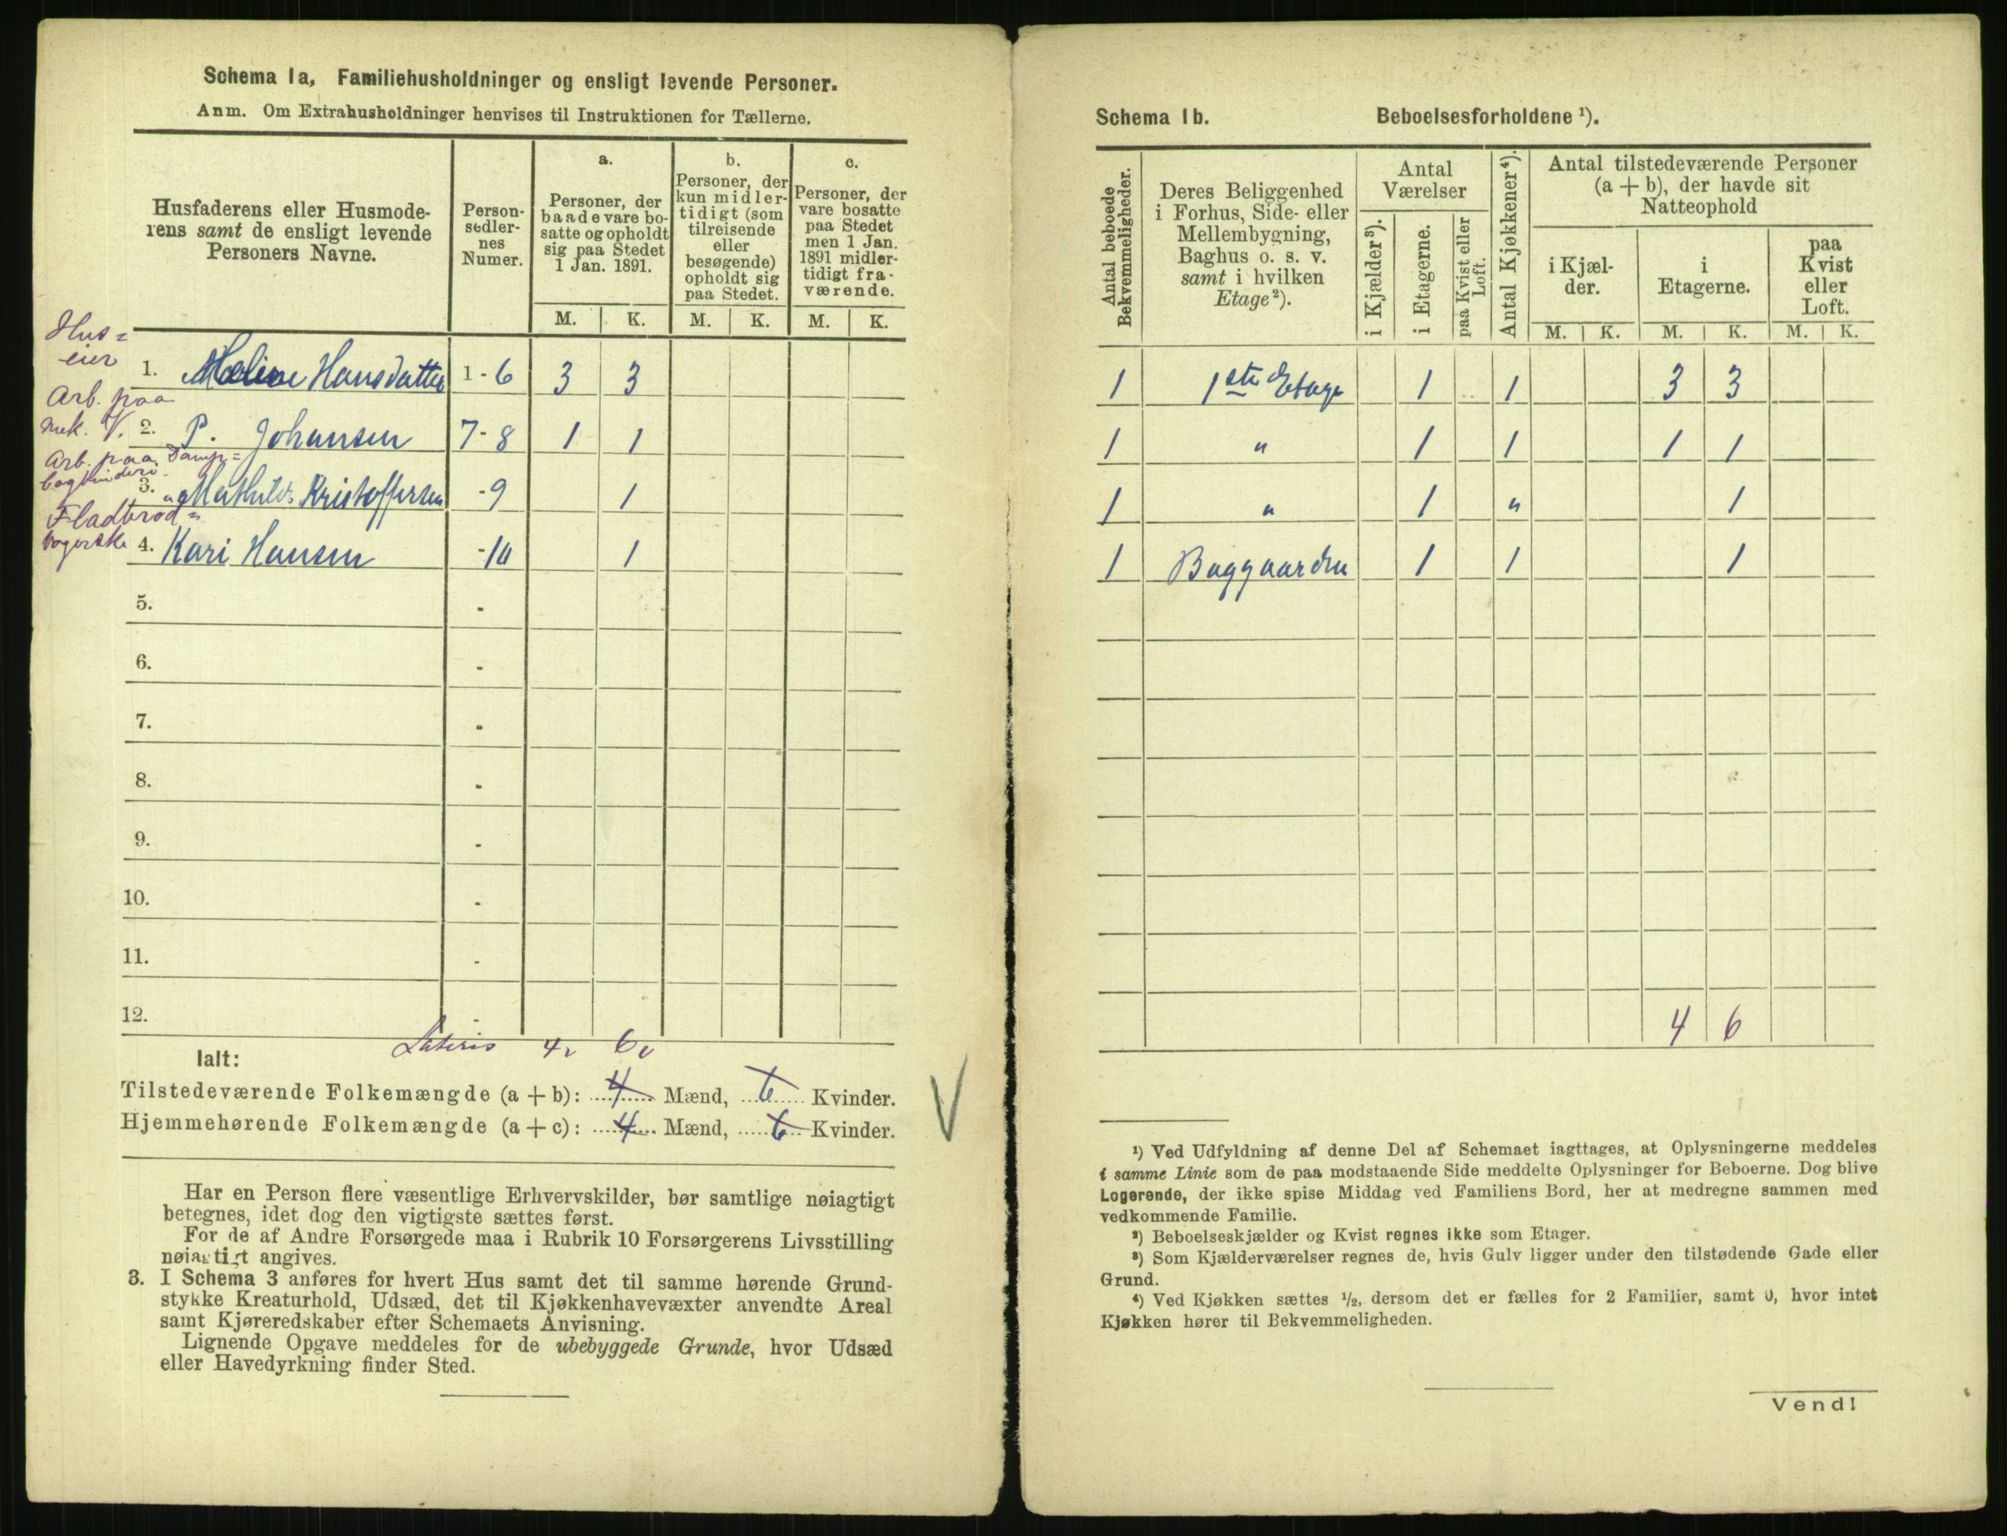 Schema 1a, Familiehusholdninger og ensligt levende Personer.
Anm. Om Extrahusholdninger henvises til Instruktionen for Tællerne.
Husfaderens eller Husmode-
rens samt de ensligt levende
Personers Navne.
Person-
sedler-
nes
Numer.
a.
Personer, der
baade vare bo-
satte og opholdt
sig paa Stedet
1 Jan. 1891.
b.
Personer, der
kun midler-
tidigt (som
tilreisende
eller
besøgende)
opholdt sig
paa Stedet.
c.
Personer, der
vare bosatte
paa Stedet
men 1 Jan.
1891 midler-
tidigt fra-
værende.
M. K. M. K. M. K.
Hus=
eier
1. Hansdatter 1-6 3 3
Arb. paa
mek. V.
2. P. Johansen 7-8 1 1
Arb. paa Damp=
3. Mathilde Kristoffersen -9 1
Fladbrød=
bagerske
4. Kari Hansen -10 1
5. -
6. -
7. -
8. -
9. -
10. -
11. -
12. -
Lateris 4 6
Ialt:
Tilstedeværende Folkemængde (a + b): 4 Mænd, 6 Kvinder.
Hjemmehørende Folkemængde (a + c): 4 Mænd, 6 Kvinder.
Har en Person flere væsentlige Erhvervskilder, bør samtlige nøiagtigt
betegnes, idet dog den vigtigste sættes først.
For de af Andre Forsørgede maa i Rubrik 10 Forsørgerens Livsstilling
nøiagtigt angives.
3. I Schema 3 anføres for hvert Hus samt det til samme hørende Grund-
stykke Kreaturhold, Udsæd, det til Kjøkkenhavevæxter anvendte Areal
samt Kjøreredskaber efter Schemaets Anvisning.
Lignende Opgave meddeles for de ubebyggede Grunde, hvor Udsæd
eller Havedyrkning finder Sted.
V
Schema 1b. Beboelsesforholdene ¹).
Antal beboede
Bekvemmeligheder.
Deres Beliggenhed
i Forhus, Side- eller
Mellembygning,
Baghus o. s. v.
samt i hvilken
Etage²).
Antal
Værelser
i Kjælder³).
i Etagerne.
paa Kvist eller
Loft.
Antal Kjøkkener⁴).
Antal tilstedeværende Personer
(a + b), der havde sit
Natteophold
i Kjæl-
der.
i
Etagerne.
paa
Kvist
eller
Loft.
M. K. M. K. M. K.
1 1ste Etage 1 1 3 3
1 " 1 1 1 1
1 " 1 " 1
1 Baggaarden 1 1 1
4 6
¹) Ved Udfyldning af denne Del af Schemaet iagttages, at Oplysningerne meddeles
i samme Linie som de paa modstaaende Side meddelte Oplysninger for Beboerne. Dog blive
Logerende, der ikke spise Middag ved Familiens Bord, her at medregne sammen med
vedkommende Familie.
²) Beboelseskjælder og Kvist regnes ikke som Etager.
³) Som Kjælderværelser regnes de, hvis Gulv ligger under den tilstødende Gade eller
Grund.
⁴) Ved Kjøkken sættes ½, dersom det er fælles for 2 Familier, samt 0, hvor intet
Kjøkken hører til Bekvemmeligheden.
Vend!